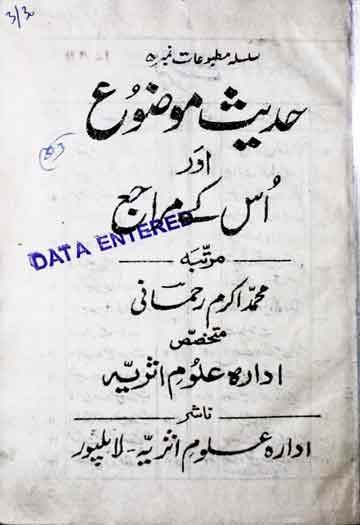 3/3
سلسلہ مطبوعات نمبر ۵
حدیث موضوع
اور
اُس کے مراجع
DATA ENTERED
مرتبہ
محمد اکرم رحمانی
متخصص
ادارہ علوم اثریہ
ناشر
ادارہ علوم اثریہ - لائلپور